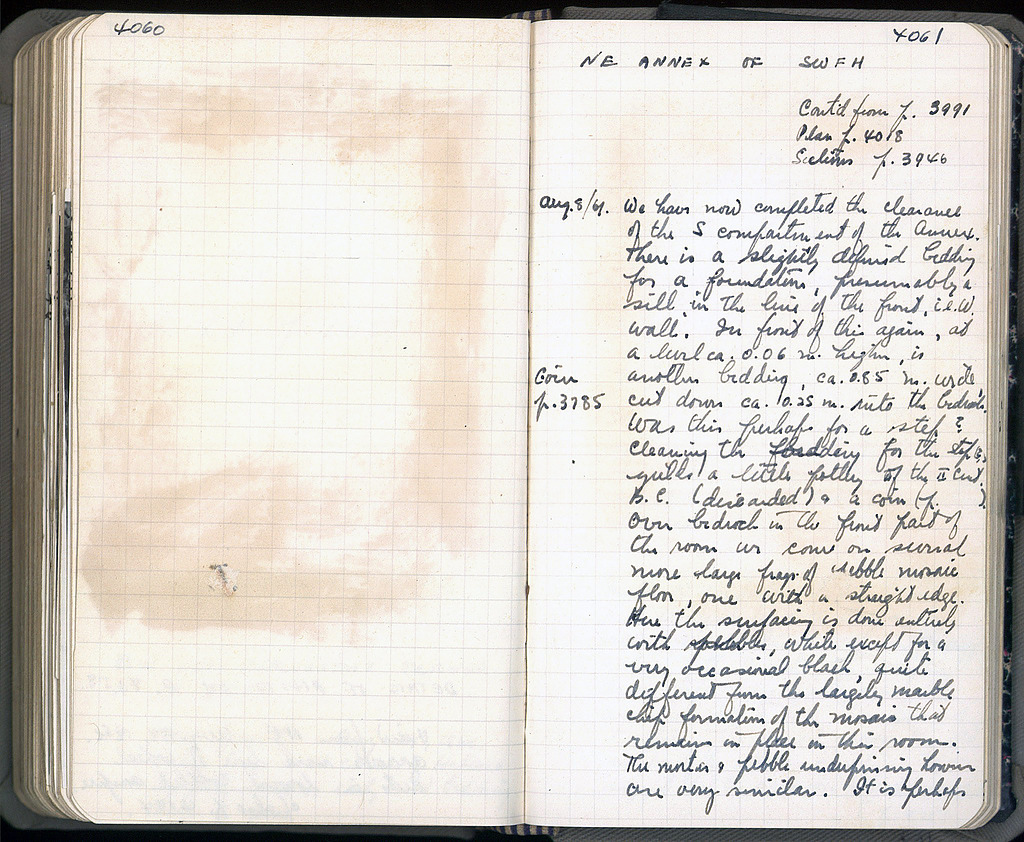 4060
4061
NE ANNEX OF SWFH
Cont'd from p. 3991
Plan p. 4018
Sections p. 3946
Aug. 8/61. We have now completed the clearance
of the S compartment of the Annex.
There is a slightly defined bedding
for a foundation, presumably a
sill, in the line of the front, i.e. W.
wall. In front of this again, at
a level ca. 0.06 m. higher, is
another bedding, ca. 0.85 m. wide,
cut down ca. 0.25 m. into the bedrock.
Was this perhaps for a step?
cleaning the bedding for the step(?)
yields a little pottery of the II cent.
B.C. (discarded) & a coin (p. ).
Coin
p. 3785
Over bedrock in the front part of
the room we come on several
more large frags. of pebble mosaic
floor, one with a straight edge.
Here the surfacing is done entirely
with pebbles, white except for a
very occasional black, quite
different from the largely marble
chip formation of the mosaic that
remains in place in this room.
The mortar & pebble underpinning however
are very similar. It is perhaps